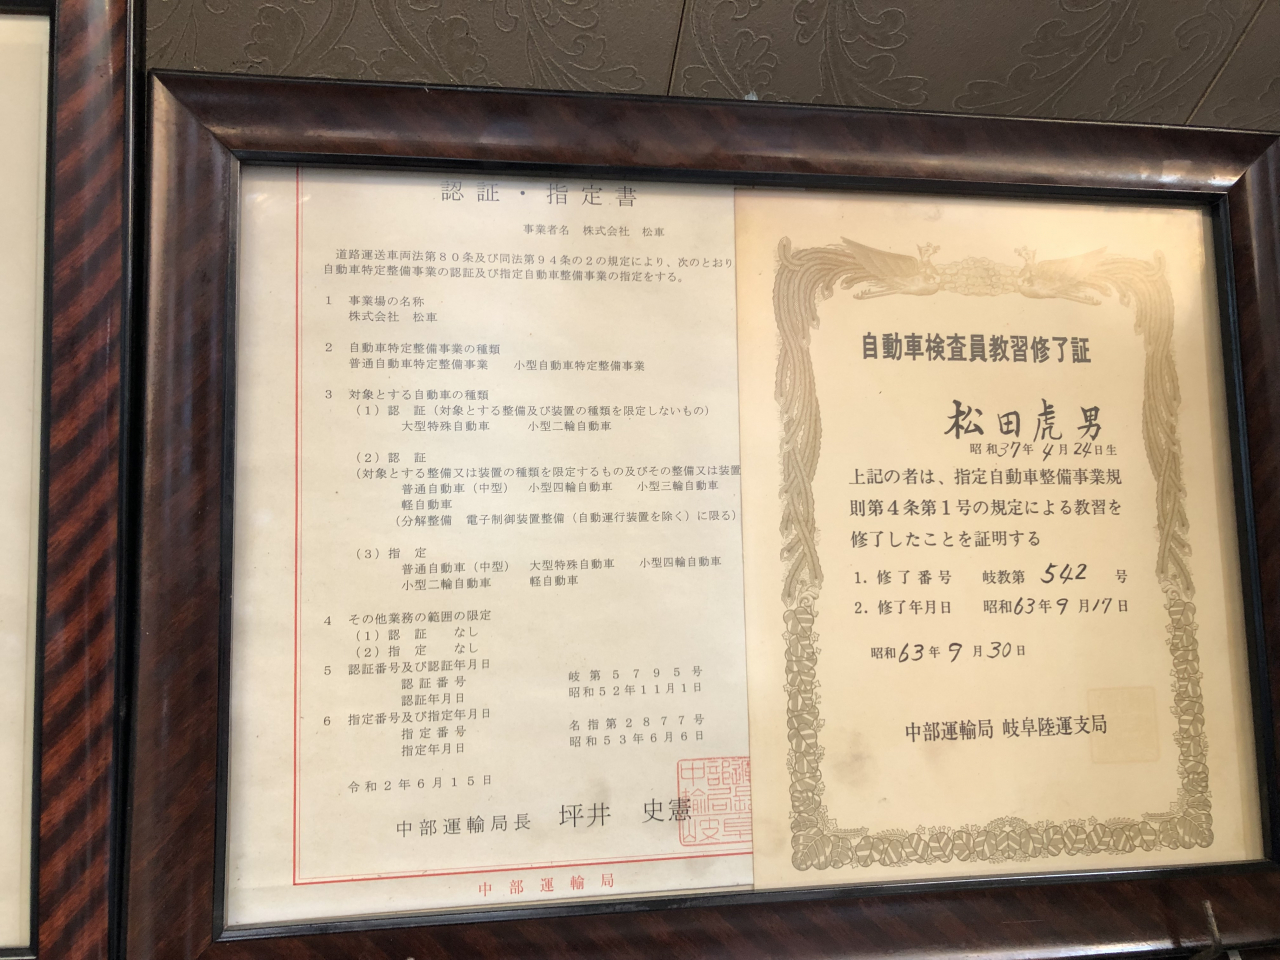 認証・指定書
事業者名 株式会社 松車
道路運送車両法第80条及び同法第94条の2の規定により、次のとおり
自動車特定整備事業の認証及び指定自動車整備事業の指定をする。
1 事業場の名称
株式会社 松車
2 自動車特定整備事業の種類
普通自動車特定整備事業 小型自動車特定整備事業
3 対象とする自動車の種類
(1)認 証(対象とする整備及び装置の種類を限定しないもの)
大型特殊自動車 小型二輪自動車
(2)認 証
(対象とする整備又は装置の種類を限定するもの及びその整備又は装置
普通自動車(中型) 小型四輪自動車 小型三輪自動車
軽自動車
(分解整備 電子制御装置整備(自動運行装置を除く)に限る)
(3)指 定
普通自動車(中型) 大型特殊自動車 小型四輪自動車
小型二輪自動車 軽自動車
4 その他業務の範囲の限定
(1)認 証 なし
(2)指 定 なし
5 認証番号及び認証年月日
認証番号 岐第5795号
認証年月日 昭和52年11月1日
6 指定番号及び指定年月日
指定番号 名指第2877号
指定年月日 昭和53年6月6日
令和2年6月15日
中部運輸局長 坪井 史憲
中部運輸局
自動車検査員教習修了証
松田虎男
昭和37年4月24日生
上記の者は、指定自動車整備事業規
則第4条第1号の規定による教習を
修了したことを証明する
1. 修了番号 岐教第 542 号
2. 修了年月日 昭和63年9月17日
昭和63年9月30日
中部運輸局 岐阜陸運支局